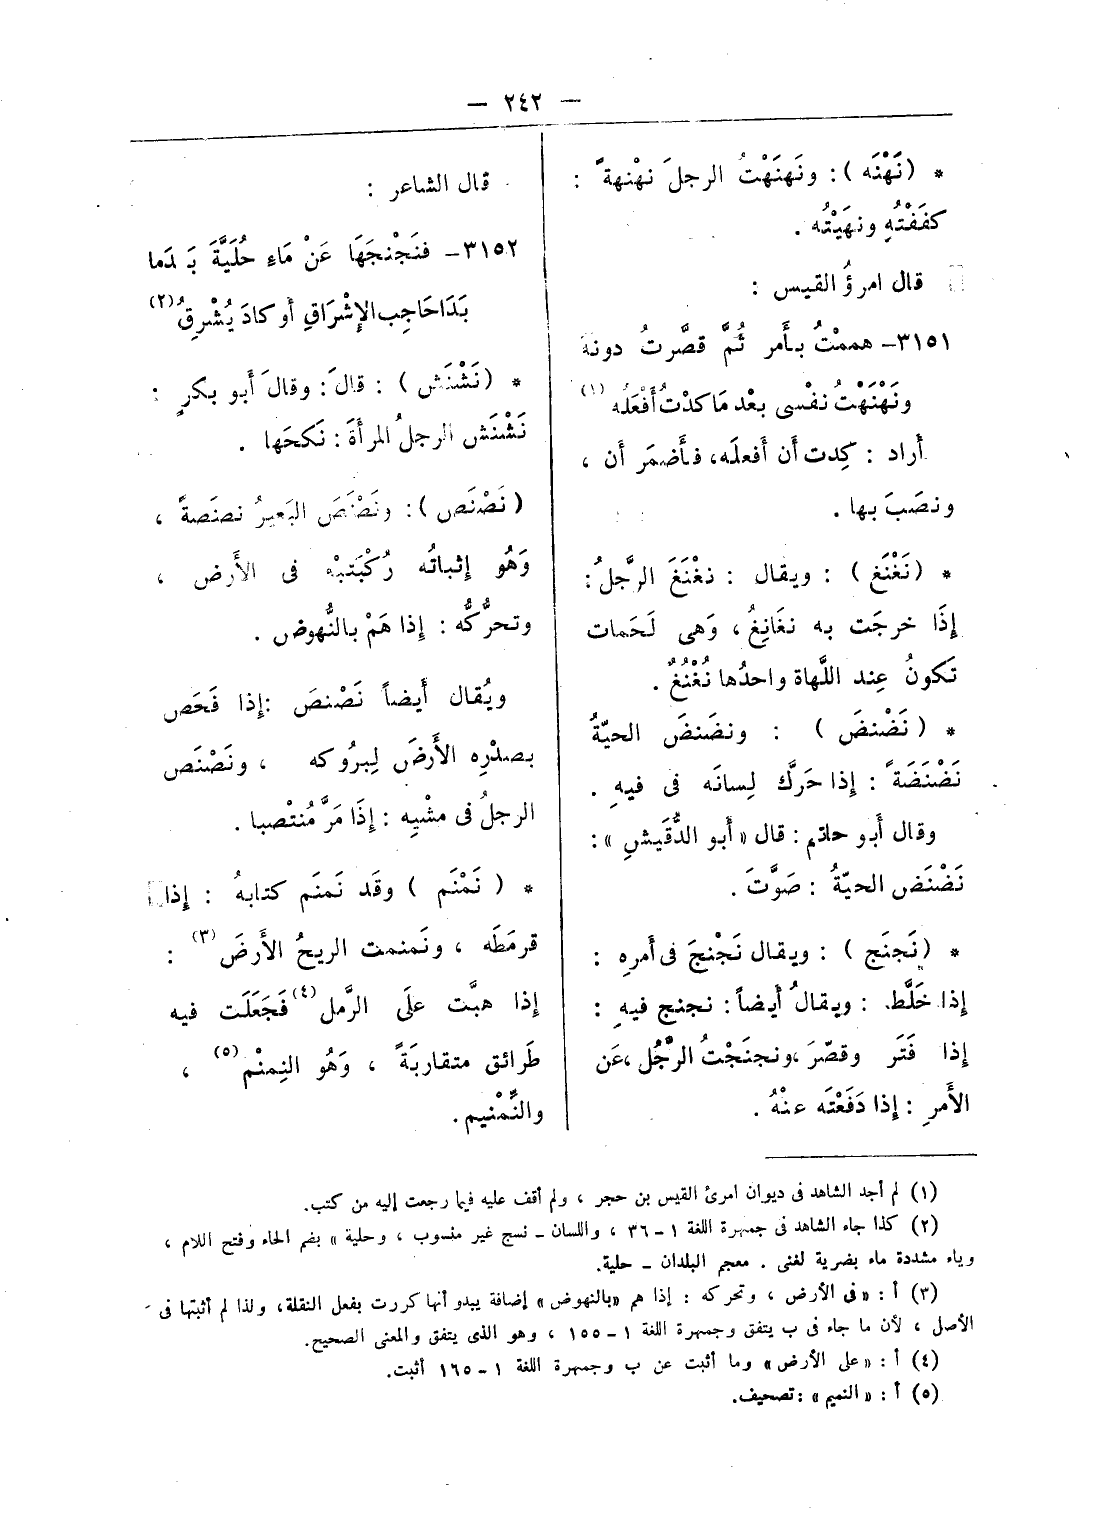 — ٢٤٢ —
* (نَهْنَه) : ونَهنَهْتُ الرجلَ نهْنهةً :
كفَفْتُهِ ونهَيْتُه .
قال امرؤُ القيس :
٣١٥١ــ هممْتُ بأَمر ثُمَّ قصَّرتُ دونهُ
ونَهْنَهْتُ نفْسى بعْد مَا كدْتُ أَفْعَلُه (١)
أراد : كِدت أن أفعلَه، فأَضمَر أن ،
ونصَبَ بها .
* (نَغْنَغ) : ويقال : نغْنَغَ الرَّجلُ :
إِذَا خرجَت به نغَانِغُ ، وَهى لَحَمات
تَكونُ عِند اللَّهاة واحدُها نُغْنُغٌ .
* (نَضْنضَ) : ونضَنضَ الحيّةُ
نَضْنَضَةً : إِذا حَرَّك لِسانَه فى فيهِ .
وقال أَبو حاتم : قال « أَبو الدُّقَيشِ » :
نَضْنَض الحيّةُ : صَوَّتَ .
* (نَجنَج) : ويقال نَجْنجَ فى أَمرِه :
إذا خَلَّط. : ويقالُ أَيضاً : نجنج فيهِ :
إِذا فَتَر وقصّرَ ، ونجنَجْتُ الرَّجُل ، عَن
الأَمرِ : إذا دَفَعْتَه عنْهُ .
قال الشاعر :
٣١٥٢ــ فنَجْنجَهَا عَنْ مَاءِ حُلَيَّةَ بَـ دَما
بَدَا حَاجِب الإِشْرَاقِ أَو كادَ يُشْرِقُ (٢)
* (نَشْنَش) : قالَ : وقالَ أَبو بكرٍ :
نَشْنَش الرجلُ المرأَةَ : نَكحَها .
(نَصْنَص) : ونَصْنَصَ البَعيرُ نصنَصةً ،
وَهُو إِثباتُه رُكْبَتيْه فى الأَرض ،
وتحرُّكُه : إِذا هَمْ بالنُّهوض .
ويُقال أَيضاً نَصْنصَ : إِذا فَحَص
بصدْرِه الأَرضَ لِبرُوكه ، ونَصْنَص
الرجلُ فى مشْيِه : إِذَا مَرَّ مُنتْصبا .
* (نَمْنَم) وقَد نَمنَم كتابهُ : إِذا
قرمَطَه ، ونَمنمت الريحُ الأَرضَ (٣) :
إِذا هبَّت علَى الرَّمل (٤) فَجَعَلَت فيه
طَرائق متقاربَةً ، وَهُو النِمنْم (٥) ،
والنَّمْنيم .
(١) لم أجد الشاهد فى ديوان امرئ القيس بن حجر ، ولم أقف عليه فيما رجعت إليه من كتب.
(٢) كذا جاء الشاهد فى جمهرة اللغة ١ – ٣٦ ، واللسان – نسج غير منسوب ، وحلية » بضم الحاء وفتح اللام ،
وياء مشددة ماء بضرية لغنى . معجم البلدان – حلية.
(٣) أ : «فى الأرض ، وتحركه : إذا هم «بالنهوض» إضافة يبدو أنها كررت بفعل النقلة، ولذا لم أثبتها فى
الأصل ، لأن ما جاء فى ب يتفق وجمهرة اللغة ١ – ١٥٥ ، وهو الذى يتفق والمعنى الصحيح.
(٤) أ : «على الأرض» وما أثبت عن ب وجمهرة اللغة ١ – ١٦٥ أثبت.
(٥) أ : « النميم » : تصحيف.